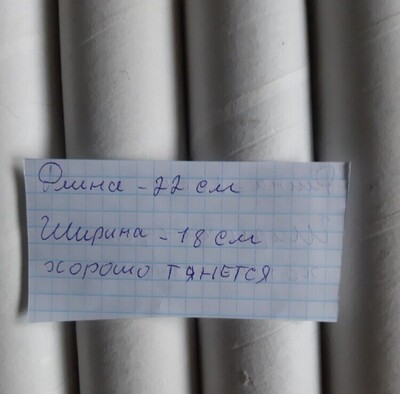 Длина - 22 см
Ширина - 18 см
хорошо тянется